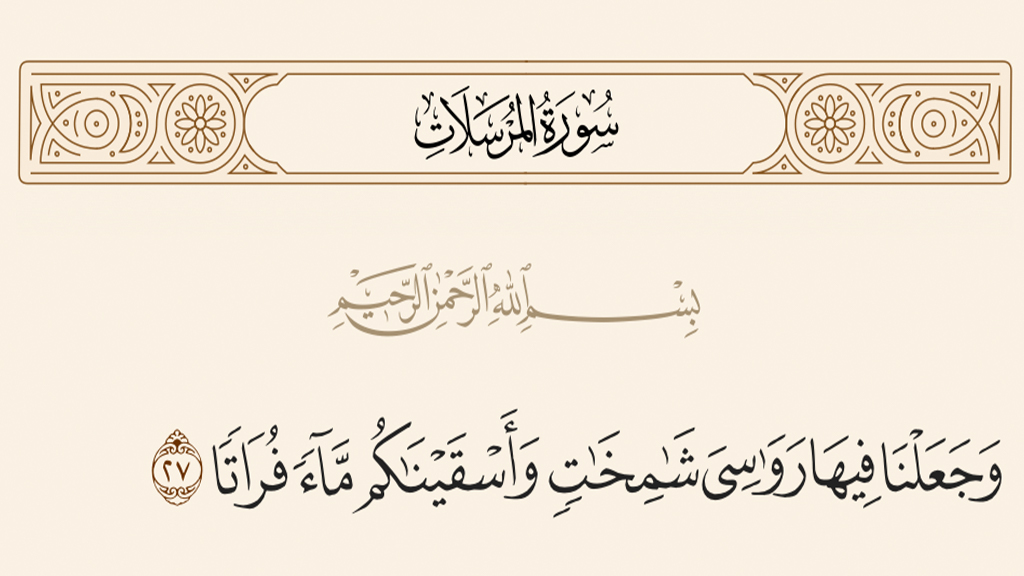 سُورَةُ المُرْسَلَاتِ
بِسْمِ ٱللَّهِ ٱلرَّحْمَٰنِ ٱلرَّحِيمِ
وَجَعَلْنَا فِيهَا رَوَٰسِىَ شَٰمِخَٰتٍ وَأَسْقَيْنَٰكُم مَّآءً فُرَاتًا ٢٧